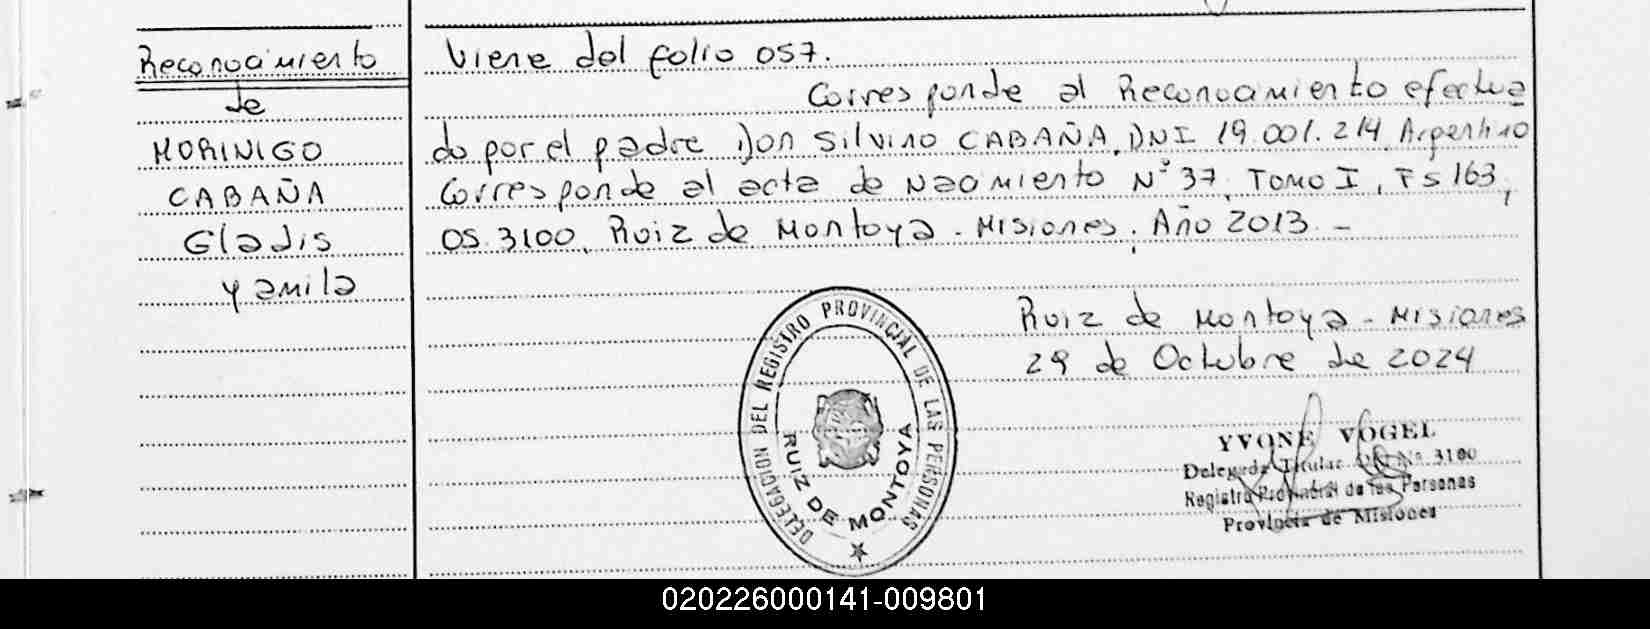 Reconocimiento
de
MORINIGO
CABAÑA
Gladis
Yamila
Viene del folio 057.
Corresponde al Reconocimiento efectua
do por el padre Don Silvino CABAÑA, DNI 19.001.214, Argentino
Corresponde al acta de Nacimiento N° 37, TOMO I, FS 163,
OS. 3100, Ruiz de Montoya - Misiones; Año 2013. -
Ruiz de Montoya - Misiones
29 de Octubre de 2024
DELEGACION DEL REGISTRO PROVINCIAL DE LAS PERSONAS
RUIZ DE MONTOYA
YVONE VOGEL
Delegada Titular Nº 3100
Registro Provincial de las Personas
Provincia de Misiones
020226000141-009801